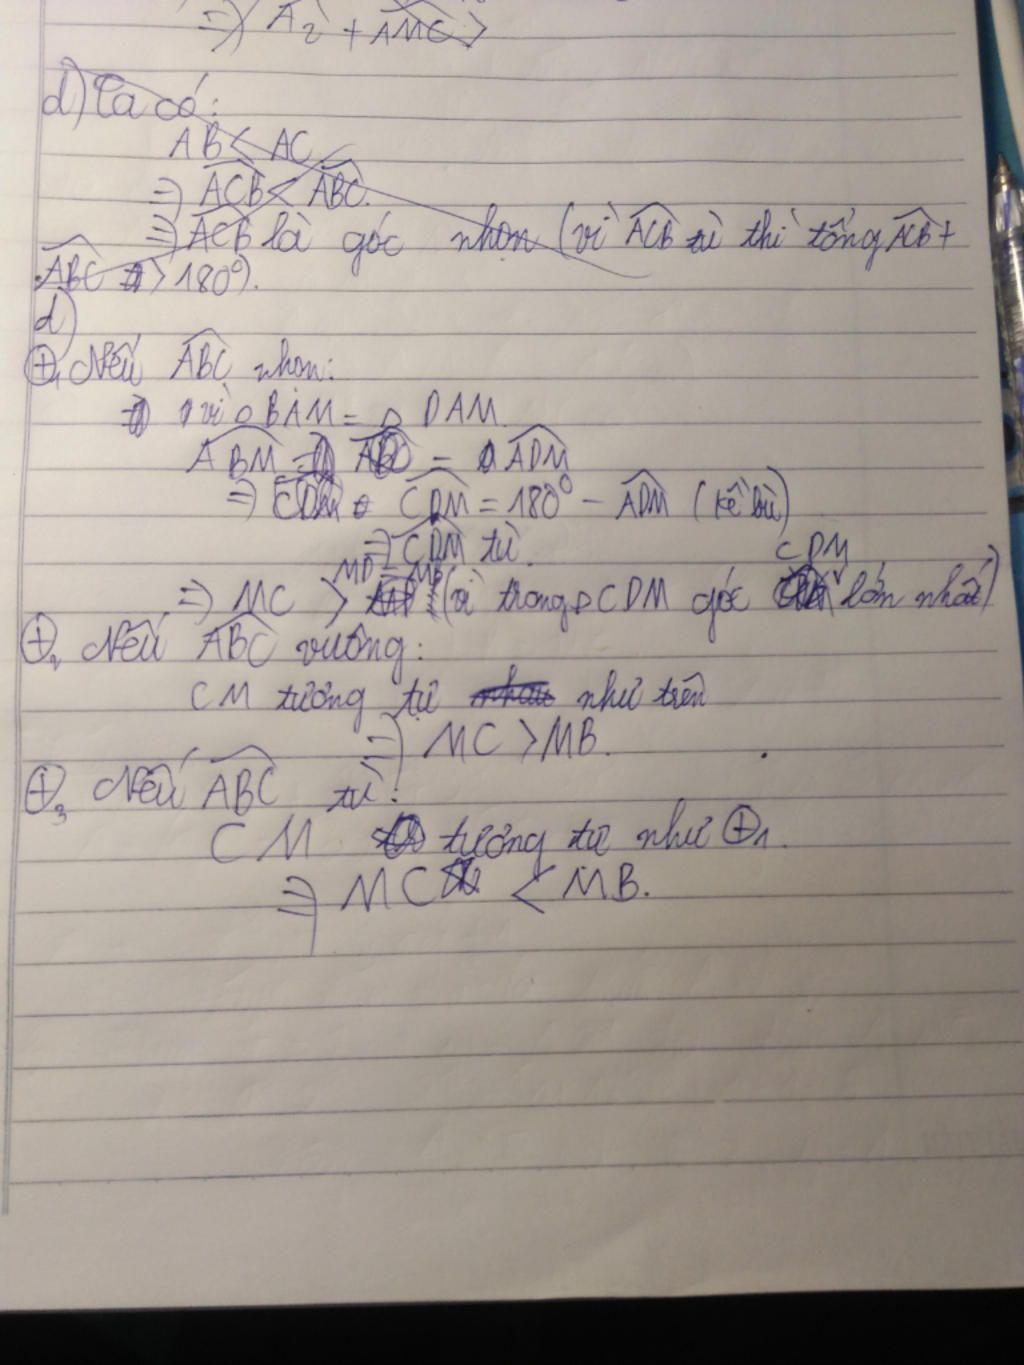 => A₂ + AMC >
d) Ta có:
AB < AC
=> ACB < ABC.
=> ACB là góc nhọn (vì ACB tù thì tổng ACB +
ABC > 180°).
d)
⊕₁ Nếu ABC nhọn:
vì △BAM = △DAM
ABM = ADM
=> CDM = 180° - ADM (kề bù)
=> CDM tù.
=> MC > MD = MB (vì trong △CDM góc CDM lớn nhất)
⊕₂ Nếu ABC vuông:
CM tương tự như trên
=> MC > MB.
⊕₃ Nếu ABC tù:
CM tương tự như ⊕₁.
=> MC < MB.